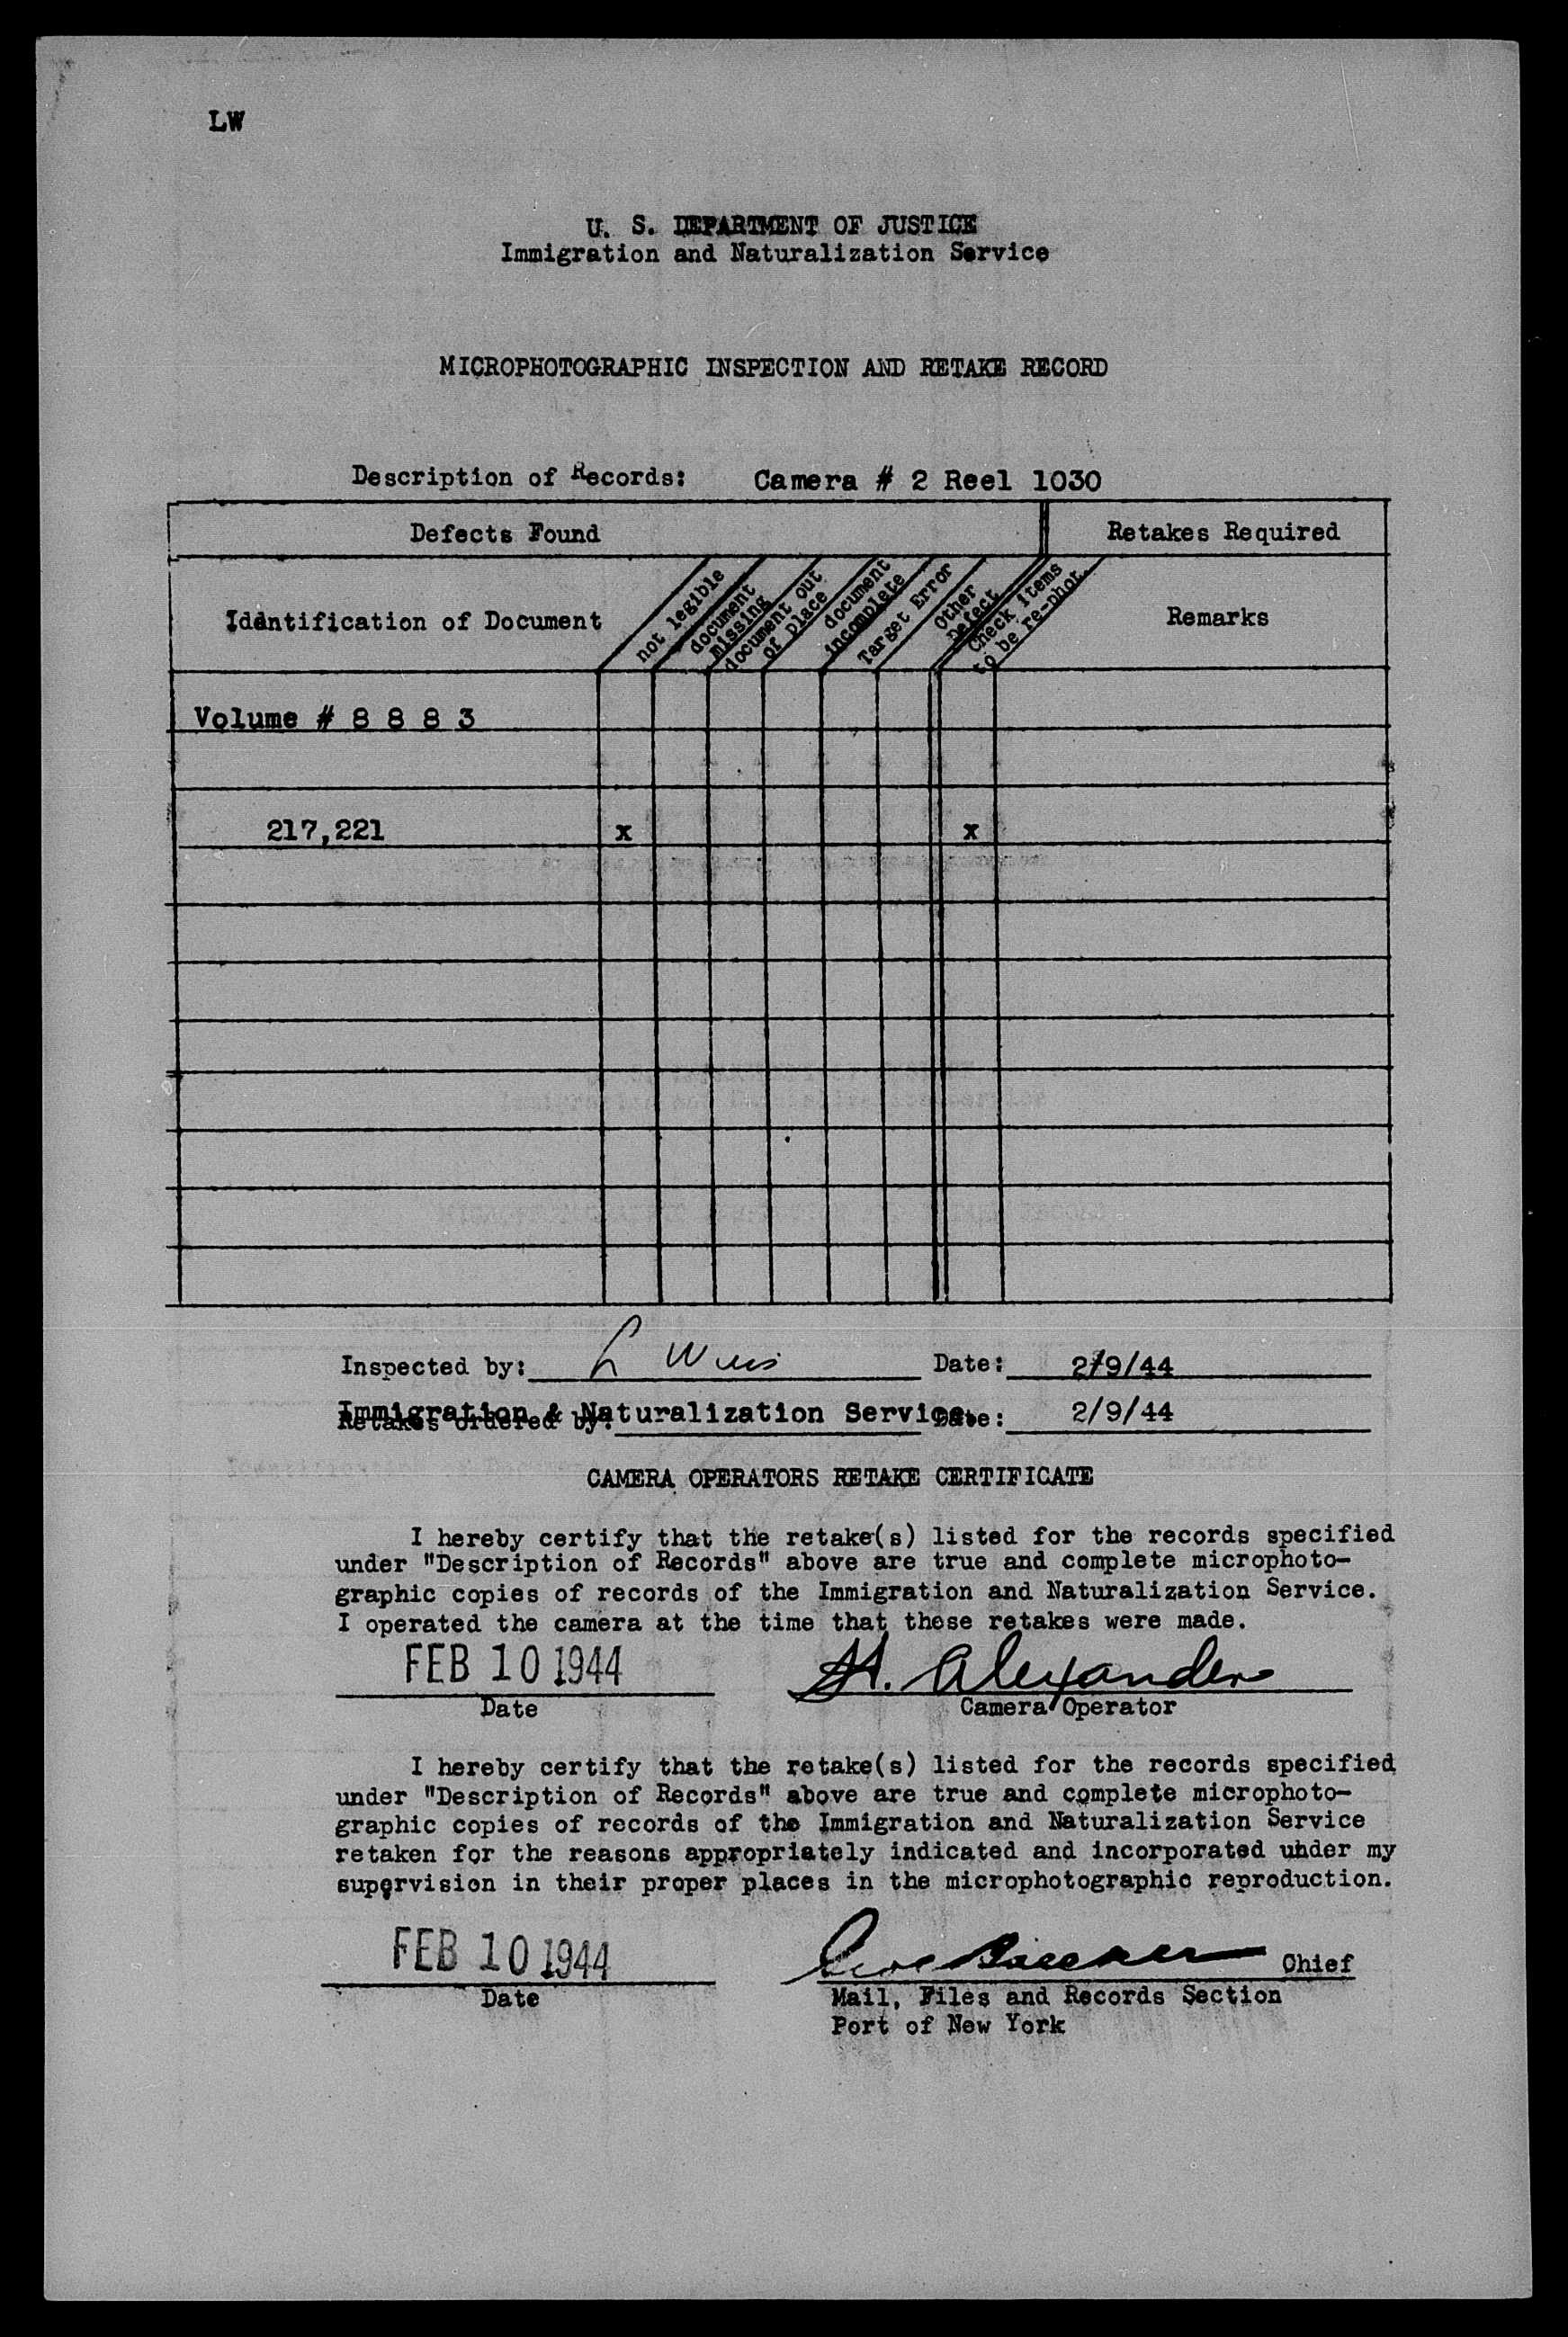 LW
U. S. DEPARTMENT OF JUSTICE
Immigration and Naturalization Service
MICROPHOTOGRAPHIC INSPECTION AND RETAKE RECORD
Description of Records: Camera # 2 Reel 1030
Defects Found Retakes Required
Identification of Document
not legible
document
missing
document out
of place
document
incomplete
Target Error
Other
Defect
Check items
to be re-phot.
Remarks
Volume # 8 8 8 3
217,221 x x
Inspected by: L Date: 2/9/44
Immigration & Naturalization Service
Retakes ordered by: Date: 2/9/44
CAMERA OPERATORS RETAKE CERTIFICATE
I hereby certify that the retake(s) listed for the records specified
under "Description of Records" above are true and complete microphoto-
graphic copies of records of the Immigration and Naturalization Service.
I operated the camera at the time that these retakes were made.
FEB 10 1944 H. Alexander
Date Camera Operator
I hereby certify that the retake(s) listed for the records specified
under "Description of Records" above are true and complete microphoto-
graphic copies of records of the Immigration and Naturalization Service
retaken for the reasons appropriately indicated and incorporated under my
supervision in their proper places in the microphotographic reproduction.
FEB 10 1944 Chief
Date Mail, Files and Records Section
Port of New York